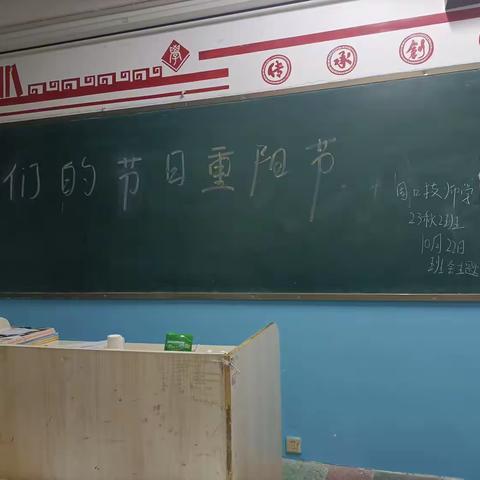 學
传承创
们的节日重阳节
周口技师学
23秋2班
10月22日
班会主题